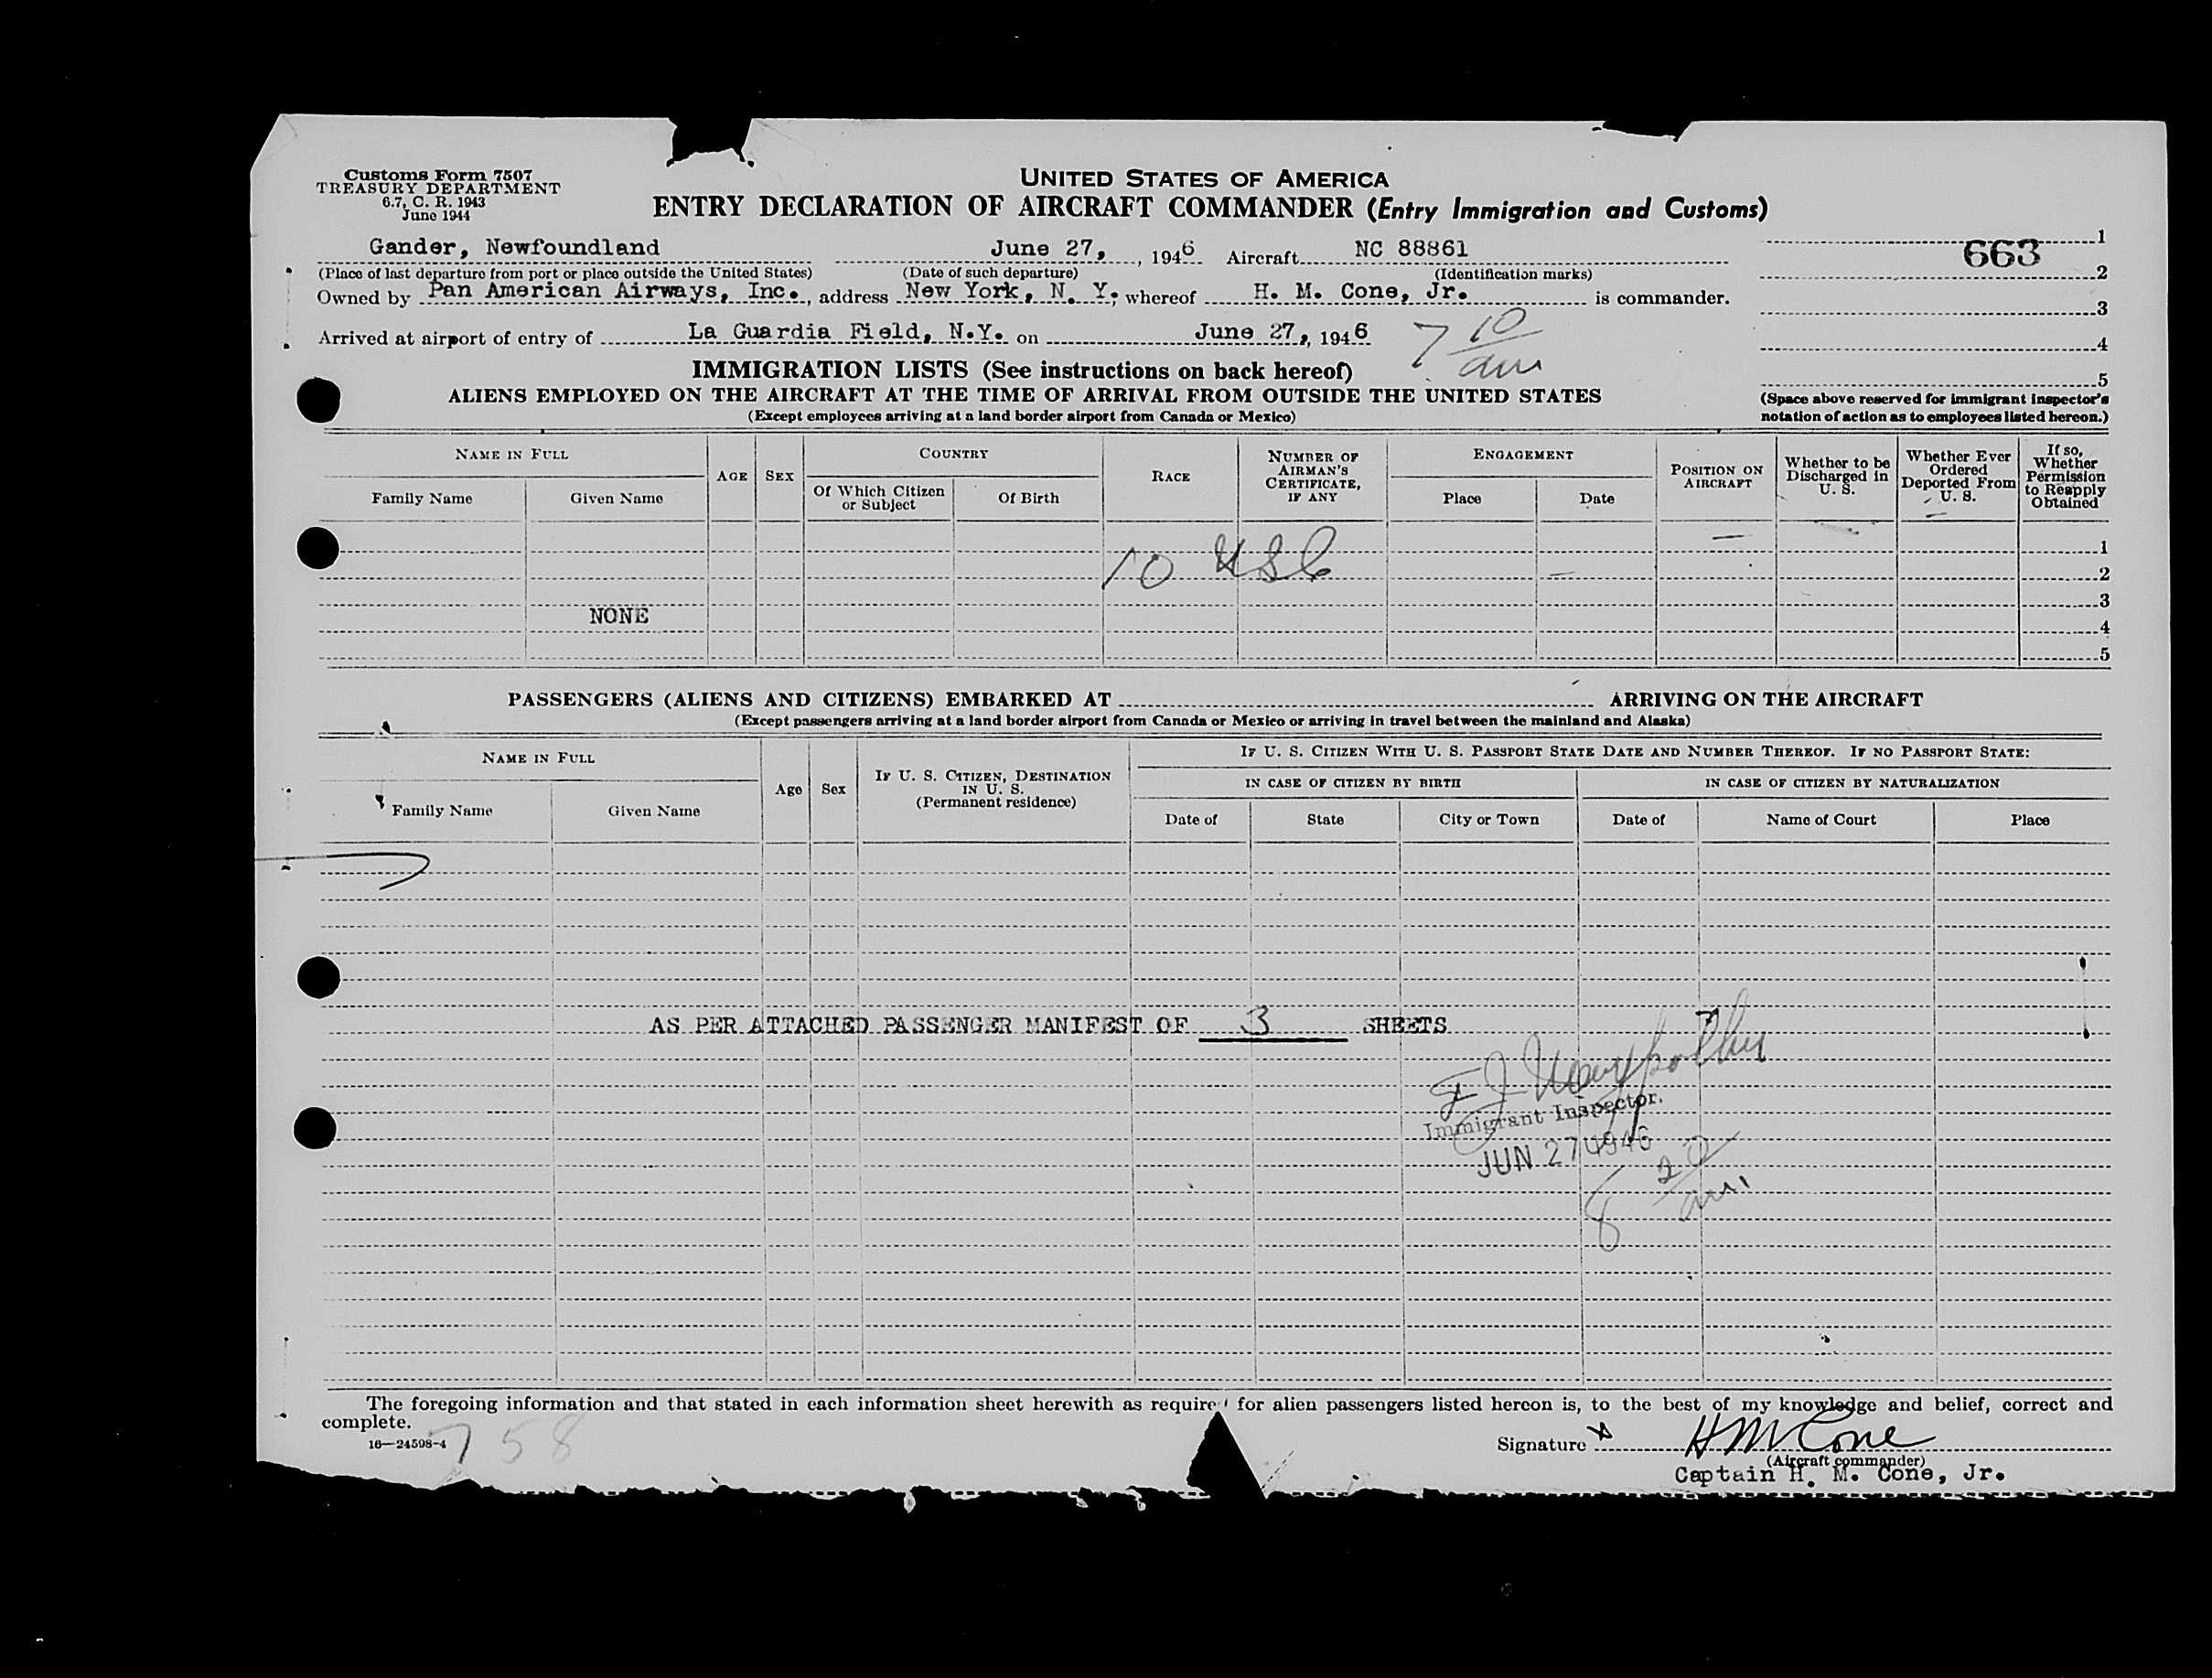 Customs Form 7507
TREASURY DEPARTMENT
6.7, C. R. 1943
June 1944
UNITED STATES OF AMERICA
ENTRY DECLARATION OF AIRCRAFT COMMANDER (Entry Immigration and Customs)
Gander, Newfoundland June 27, , 1946 Aircraft NC 88861
(Place of last departure from port or place outside the United States) (Date of such departure) (Identification marks)
Owned by Pan American Airways, Inc., address New York, N. Y.; whereof H. M. Cone, Jr. is commander.
Arrived at airport of entry of La Guardia Field, N.Y. on June 27, 1946 7 10/am
663
1
2
3
4
5
(Space above reserved for immigrant inspector's
notation of action as to employees listed hereon.)
IMMIGRATION LISTS (See instructions on back hereof)
ALIENS EMPLOYED ON THE AIRCRAFT AT THE TIME OF ARRIVAL FROM OUTSIDE THE UNITED STATES
(Except employees arriving at a land border airport from Canada or Mexico)
NAME IN FULL
Family Name Given Name
AGE SEX
COUNTRY
Of Which Citizen or Subject Of Birth
RACE
NUMBER OF AIRMAN'S CERTIFICATE, IF ANY
ENGAGEMENT
Place Date
POSITION ON AIRCRAFT
Whether to be Discharged in U. S.
Whether Ever Ordered Deported From U. S.
If so, Whether Permission to Reapply Obtained
1
10 USC
2
3
NONE
4
5
PASSENGERS (ALIENS AND CITIZENS) EMBARKED AT ARRIVING ON THE AIRCRAFT
(Except passengers arriving at a land border airport from Canada or Mexico or arriving in travel between the mainland and Alaska)
NAME IN FULL
Family Name Given Name
Age Sex
IF U. S. CITIZEN, DESTINATION IN U. S.
(Permanent residence)
IF U. S. CITIZEN WITH U. S. PASSPORT STATE DATE AND NUMBER THEREOF. IF NO PASSPORT STATE:
IN CASE OF CITIZEN BY BIRTH IN CASE OF CITIZEN BY NATURALIZATION
Date of State City or Town Date of Name of Court Place
AS PER ATTACHED PASSENGER MANIFEST OF 3 SHEETS
Immigrant Inspector.
JUN 27 1946
8 20/am
The foregoing information and that stated in each information sheet herewith as required for alien passengers listed hereon is, to the best of my knowledge and belief, correct and
complete.
16—24598-4 758
Signature H M Cone
(Aircraft commander)
Captain H. M. Cone, Jr.